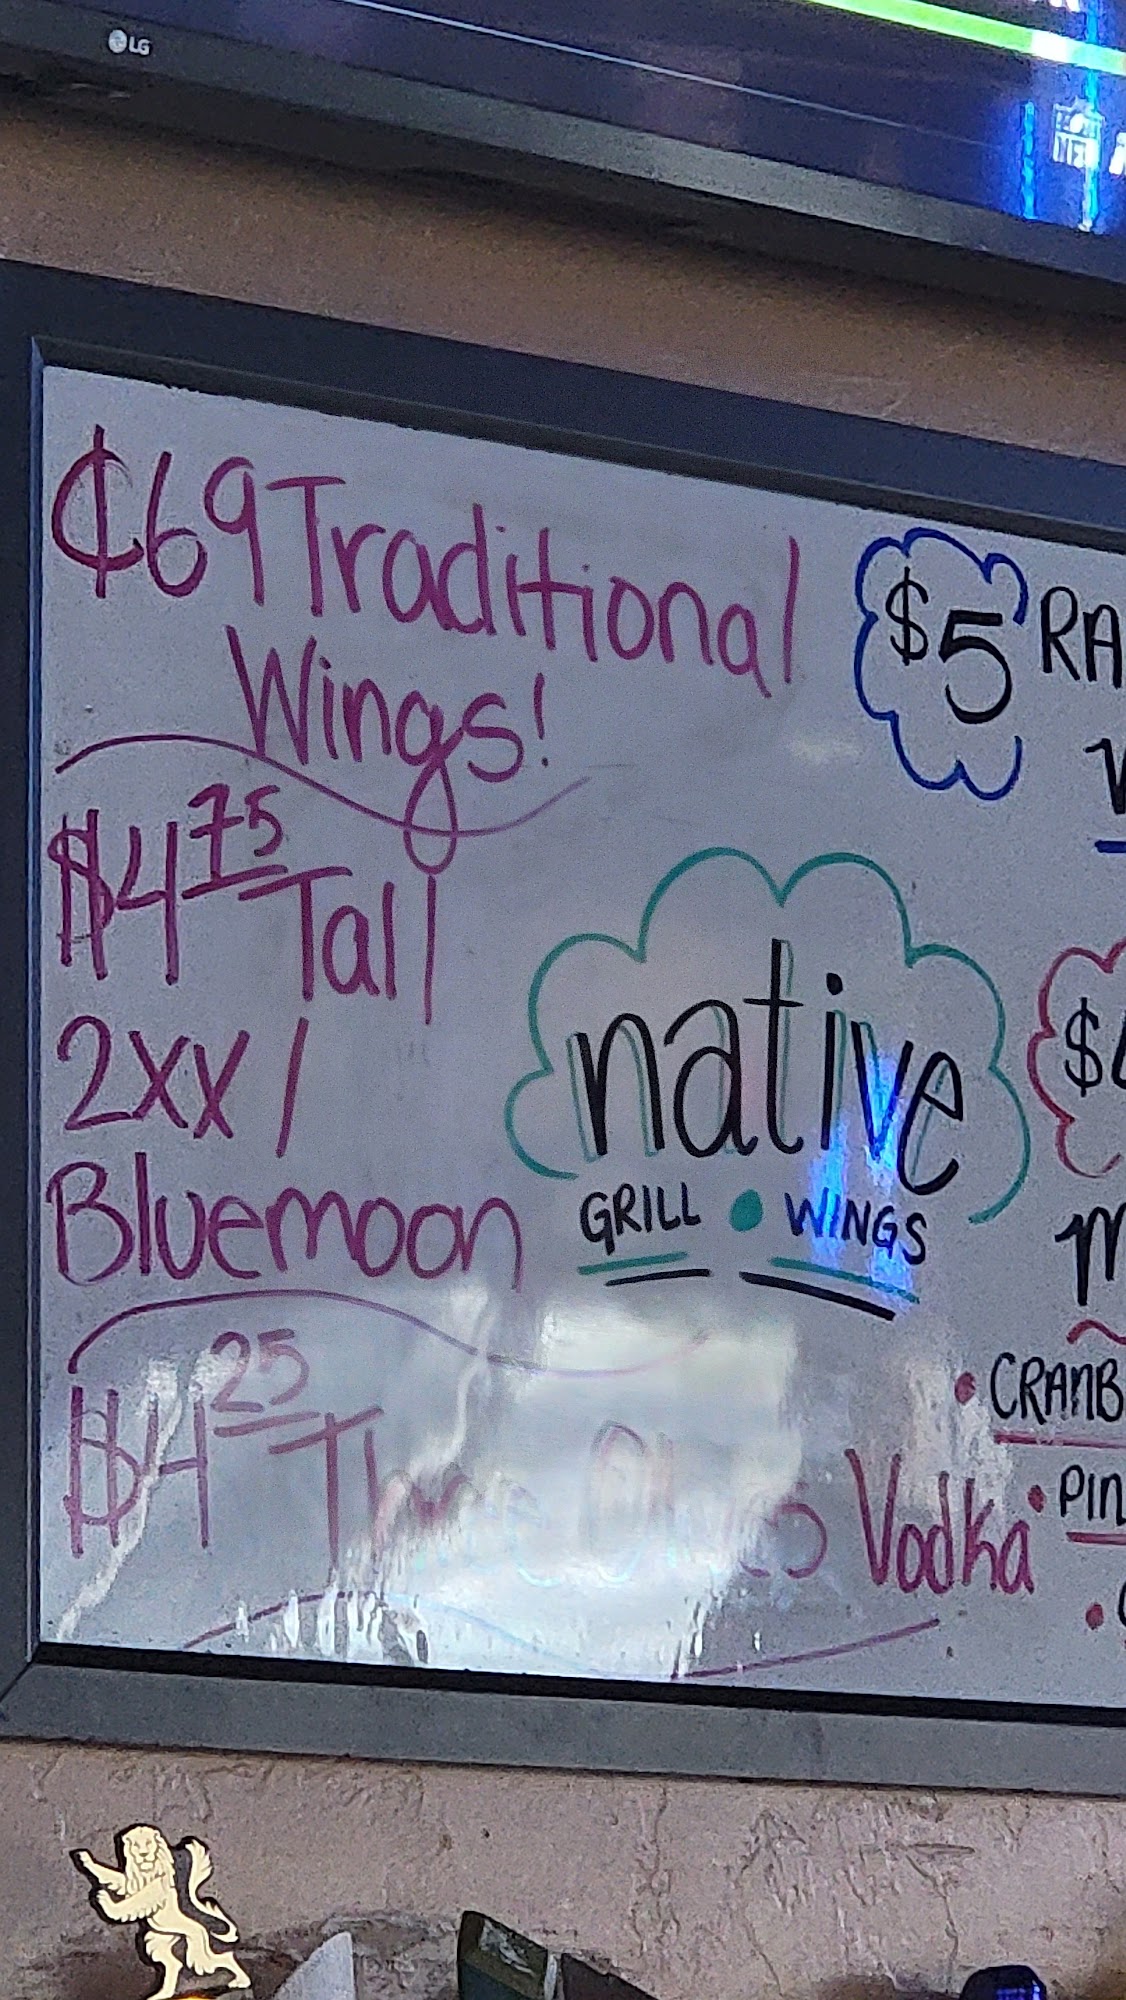 LG
NFL
¢69 Traditional
Wings!
$4 75 Tall
2xx /
Bluemoon
$4 25 Three Olives Vodka
native
GRILL • WINGS
$5
$
• CRANB
• PIN